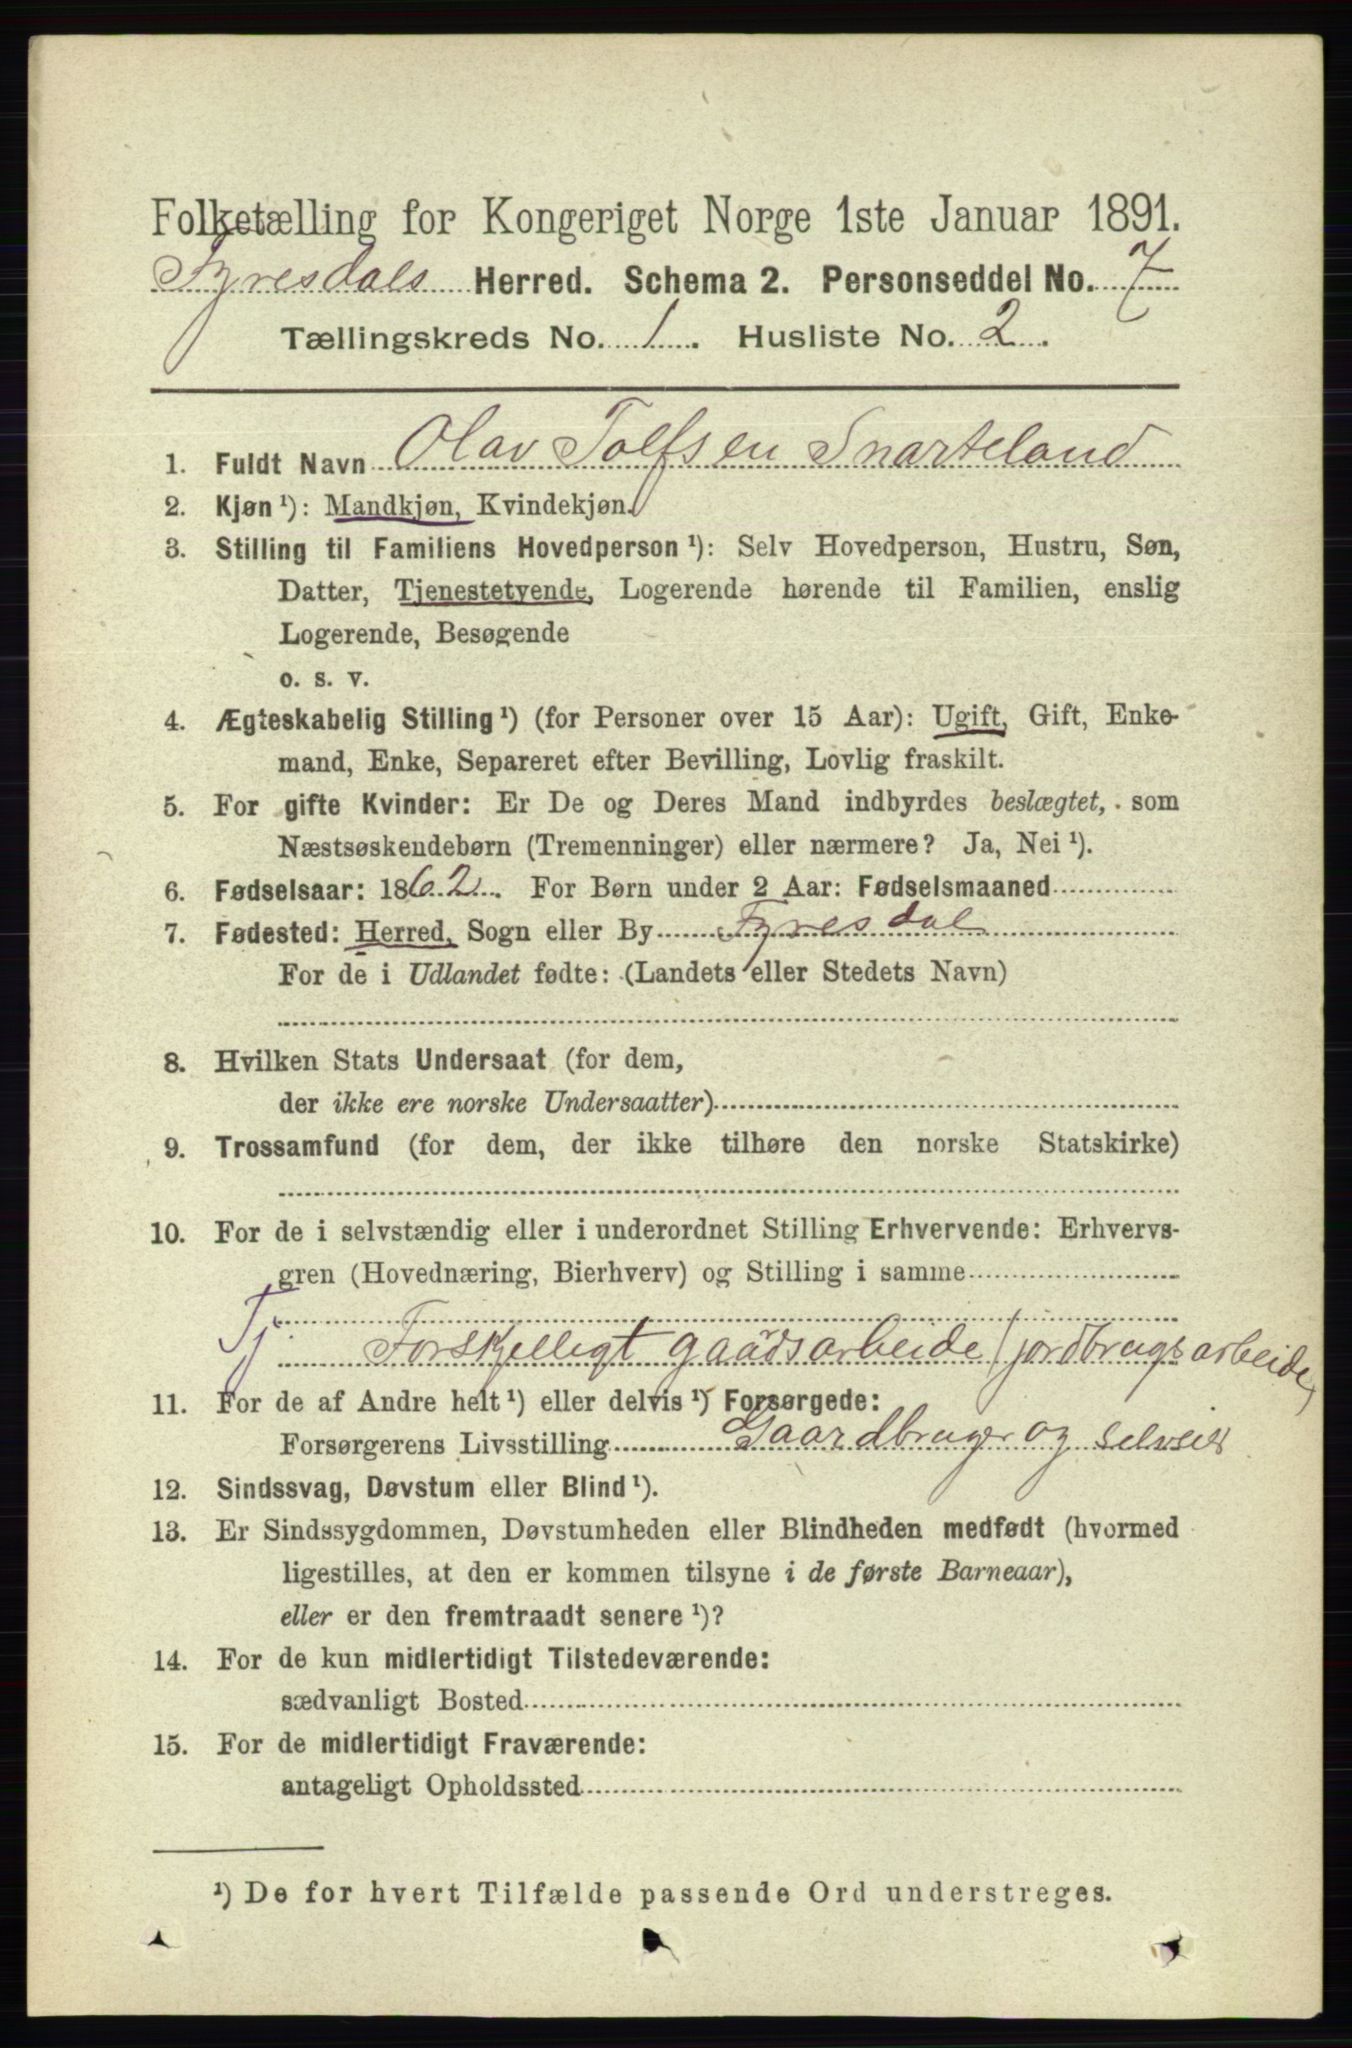 Folketælling for Kongeriget Norge 1ste Januar 1891.
Fyresdals Herred. Schema 2. Personseddel No. 7
Tællingskreds No. 1. Husliste No. 2.
1. Fuldt Navn Olav Tolfsen Snarteland
2. Kjøn ¹): Mandkjøn, Kvindekjøn.
3. Stilling til Familiens Hovedperson ¹): Selv Hovedperson, Hustru, Søn,
Datter, Tjenestetyende, Logerende hørende til Familien, enslig
Logerende, Besøgende
o. s. v.
4. Ægteskabelig Stilling ¹) (for Personer over 15 Aar): Ugift, Gift, Enke-
mand, Enke, Separeret efter Bevilling, Lovlig fraskilt.
5. For gifte Kvinder: Er De og Deres Mand indbyrdes beslægtet, som
Næstsøskendebørn (Tremenninger) eller nærmere? Ja, Nei ¹).
6. Fødselsaar: 1862. For Børn under 2 Aar: Fødselsmaaned
7. Fødested: Herred, Sogn eller By Fyresdal
For de i Udlandet fødte: (Landets eller Stedets Navn)
8. Hvilken Stats Undersaat (for dem,
der ikke ere norske Undersaatter)
9. Trossamfund (for dem, der ikke tilhøre den norske Statskirke)
10. For de i selvstændig eller i underordnet Stilling Erhvervende: Erhvervs-
gren (Hovednæring, Bierhverv) og Stilling i samme
Tj. Forskjelligt gaardsarbeide (jordbrugsarbeide)
11. For de af Andre helt ¹) eller delvis ¹) Forsørgede:
Forsørgerens Livsstilling Gaardbruger og selveier
12. Sindssvag, Døvstum eller Blind ¹).
13. Er Sindssygdommen, Døvstumheden eller Blindheden medfødt (hvormed
ligestilles, at den er kommen tilsyne i de første Barneaar),
eller er den fremtraadt senere ¹)?
14. For de kun midlertidigt Tilstedeværende:
sædvanligt Bosted
15. For de midlertidigt Fraværende:
antageligt Opholdssted
¹) De for hvert Tilfælde passende Ord understreges.